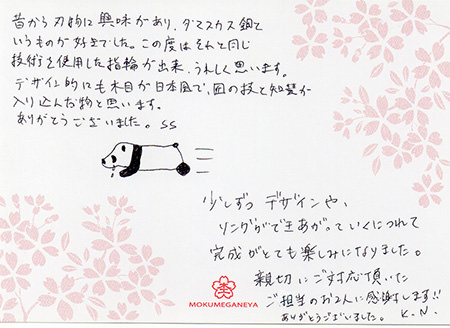 昔から刃物に興味があり、ダマスカス鋼と
いうものが好きでした。この度はそれと同じ
技術を使用した指輪が出来、うれしく思います。
デザイン的にも木目が日本風で、国の技と知慧が
入り込んだ物と思います。
ありがとうございました。SS
少しずつ デザインや、
リングができあがっていくにつれて
完成がとても楽しみになりました。
親切にご対応頂いた
ご担当のお2人に感謝します!!
ありがとうございました。 K.N.
MOKUMEGANEYA